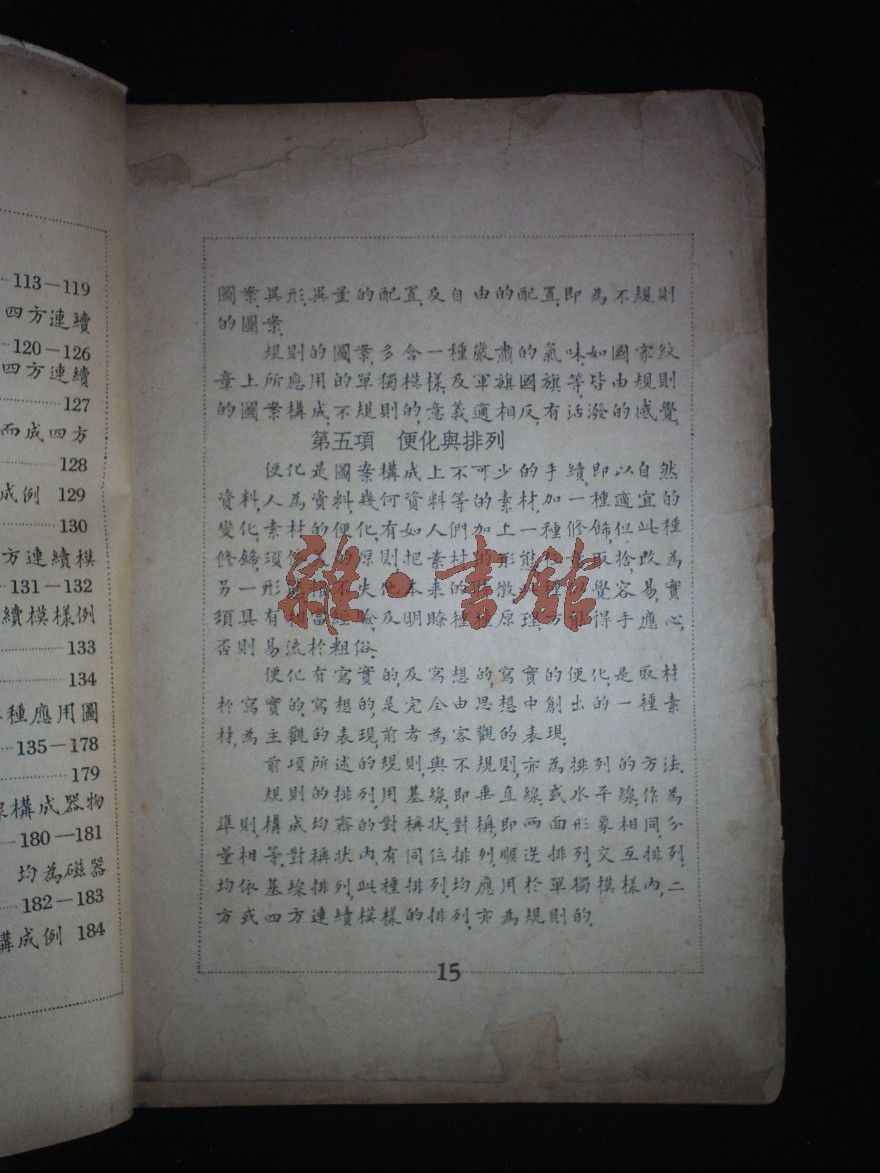 113－119
四方連續
120－126
四方連續
127
而成四方
128
成例 129
130
方連續模
131－132
續模樣例
133
134
種應用圖
135－178
179
構成器物
180－181
均為磁器
182－183
構成例 184
圖案,異形,異量的配置,及自由的配置,即為不規則
的圖案.
規則的圖案,多含一種嚴肅的氣味,如國家紋
章上所應用的單獨模樣,及軍旗國旗等,皆由規則
的圖案構成,不規則的,意義適相反,有活潑的感覺.
第五項 便化與排列
便化是圖案構成上不可少的手續,即以自然
資料,人為資料,幾何資料等的素材,加一種適宜的
變化,素材的便化,有如人們加上一種修飾,但此種
修飾,須 的原則把素材的形態 取捨,改為
另一形態 不失他本來的特徵 覺容易,實
須具有相當經驗,及明瞭種種原理,方能得手應心,
否則易流於粗俗.
便化有寫實的,及寫想的,寫實的便化,是取材
於寫實的,寫想的,是完全由思想中創出的一種素
材,為主觀的表現,前者為客觀的表現.
前項所述的規則,與不規則,亦為排列的方法.
規則的排列,用基線,即垂直線,或水平線,作為
準則,構成均齊的對稱狀,對稱,即兩面形象相同,分
量相等,對稱狀內,有同位排列,順逆排列,交互排列,
均依基線排列,此種排列,均應用於單獨模樣內,二
方或四方連續模樣的排列,亦為規則的.
15
雜·書館